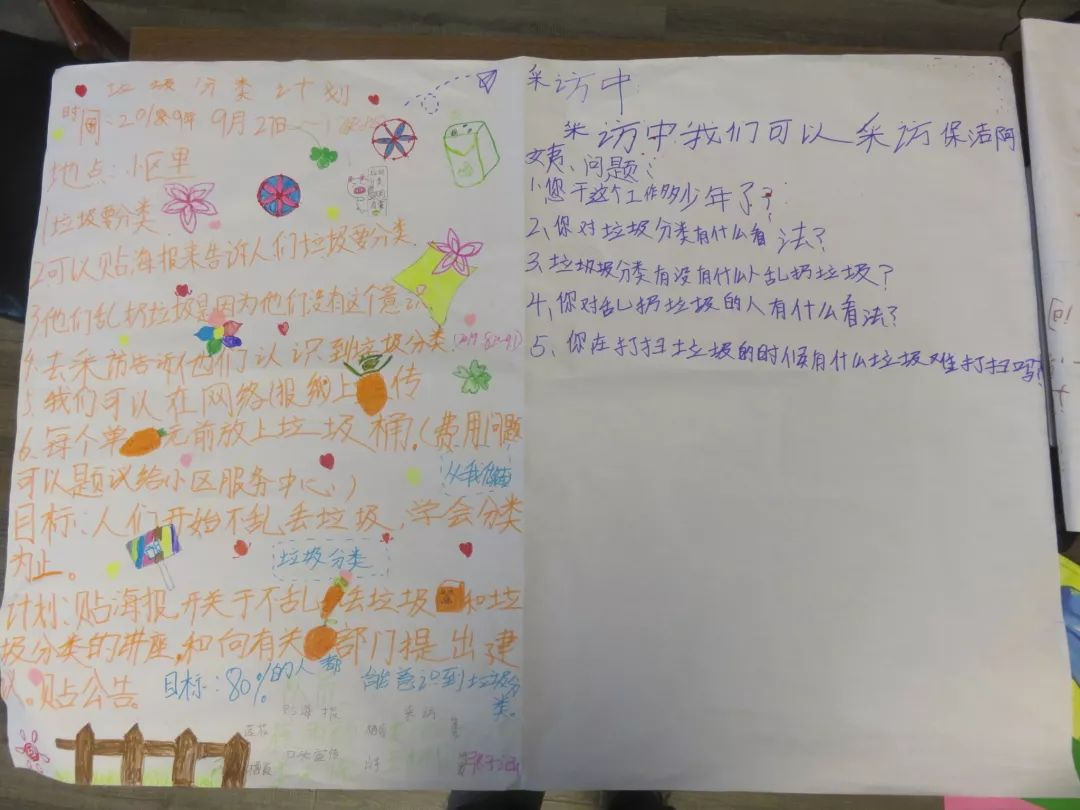 垃圾分类计划
时间:2018.9年9月27日
地点:小区里
1.垃圾要分类
2.可以贴海报来告诉人们垃圾要分类.
3.他们乱扔垃圾是因为他们没有这个意识
4.去采访告诉他们认识到垃圾分类.
5.我们可以在网络(报纸)上传
6.每个单元前放上垃圾桶.(费用问题
可以题议给小区服务中心.)
从我做起
目标:人们开始不乱丢垃圾,学会分类
为止。
垃圾分类
计划:贴海报,开关于不乱丢垃圾和垃
圾分类的讲座,和向有关部门提出建
议。贴公告。
目标:80%的人都能意识到垃圾分
类.
贴海报 采访
口头宣传
采访中
采访中我们可以采访保洁阿
姨、问题:
1.您干这个工作多少年了?
2、你对垃圾分类有什么看法?
3、垃圾圾分类有没有什么乱扔垃圾?
4、你对乱扔垃圾的人有什么看法?
5、你在打扫垃圾的时候有什么垃圾难打扫吗?